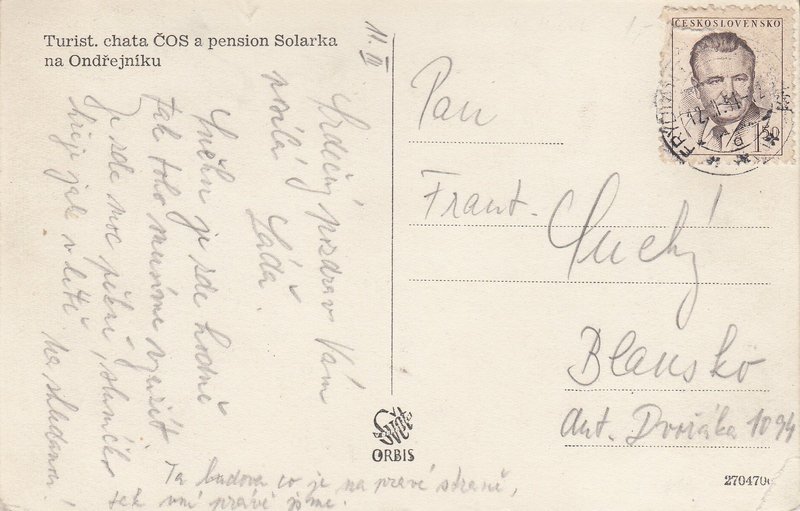 Turist. chata ČOS a pension Solarka
na Ondřejníku
11. III
Srdečný pozdrav Vám
posílá Láďa.
Sněhu je zde hodně
tak toho musíme využít
Je zde moc pěkně, sluníčko
hřeje jak v létě. Na shledanou!
Ta budova co je na pravé straně,
tak v ní právě jsme.
ORBIS
ČESKOSLOVENSKO
1.50
Pan
Frant. Suchý
Blansko
Ant. Dvořáka 1094
270470